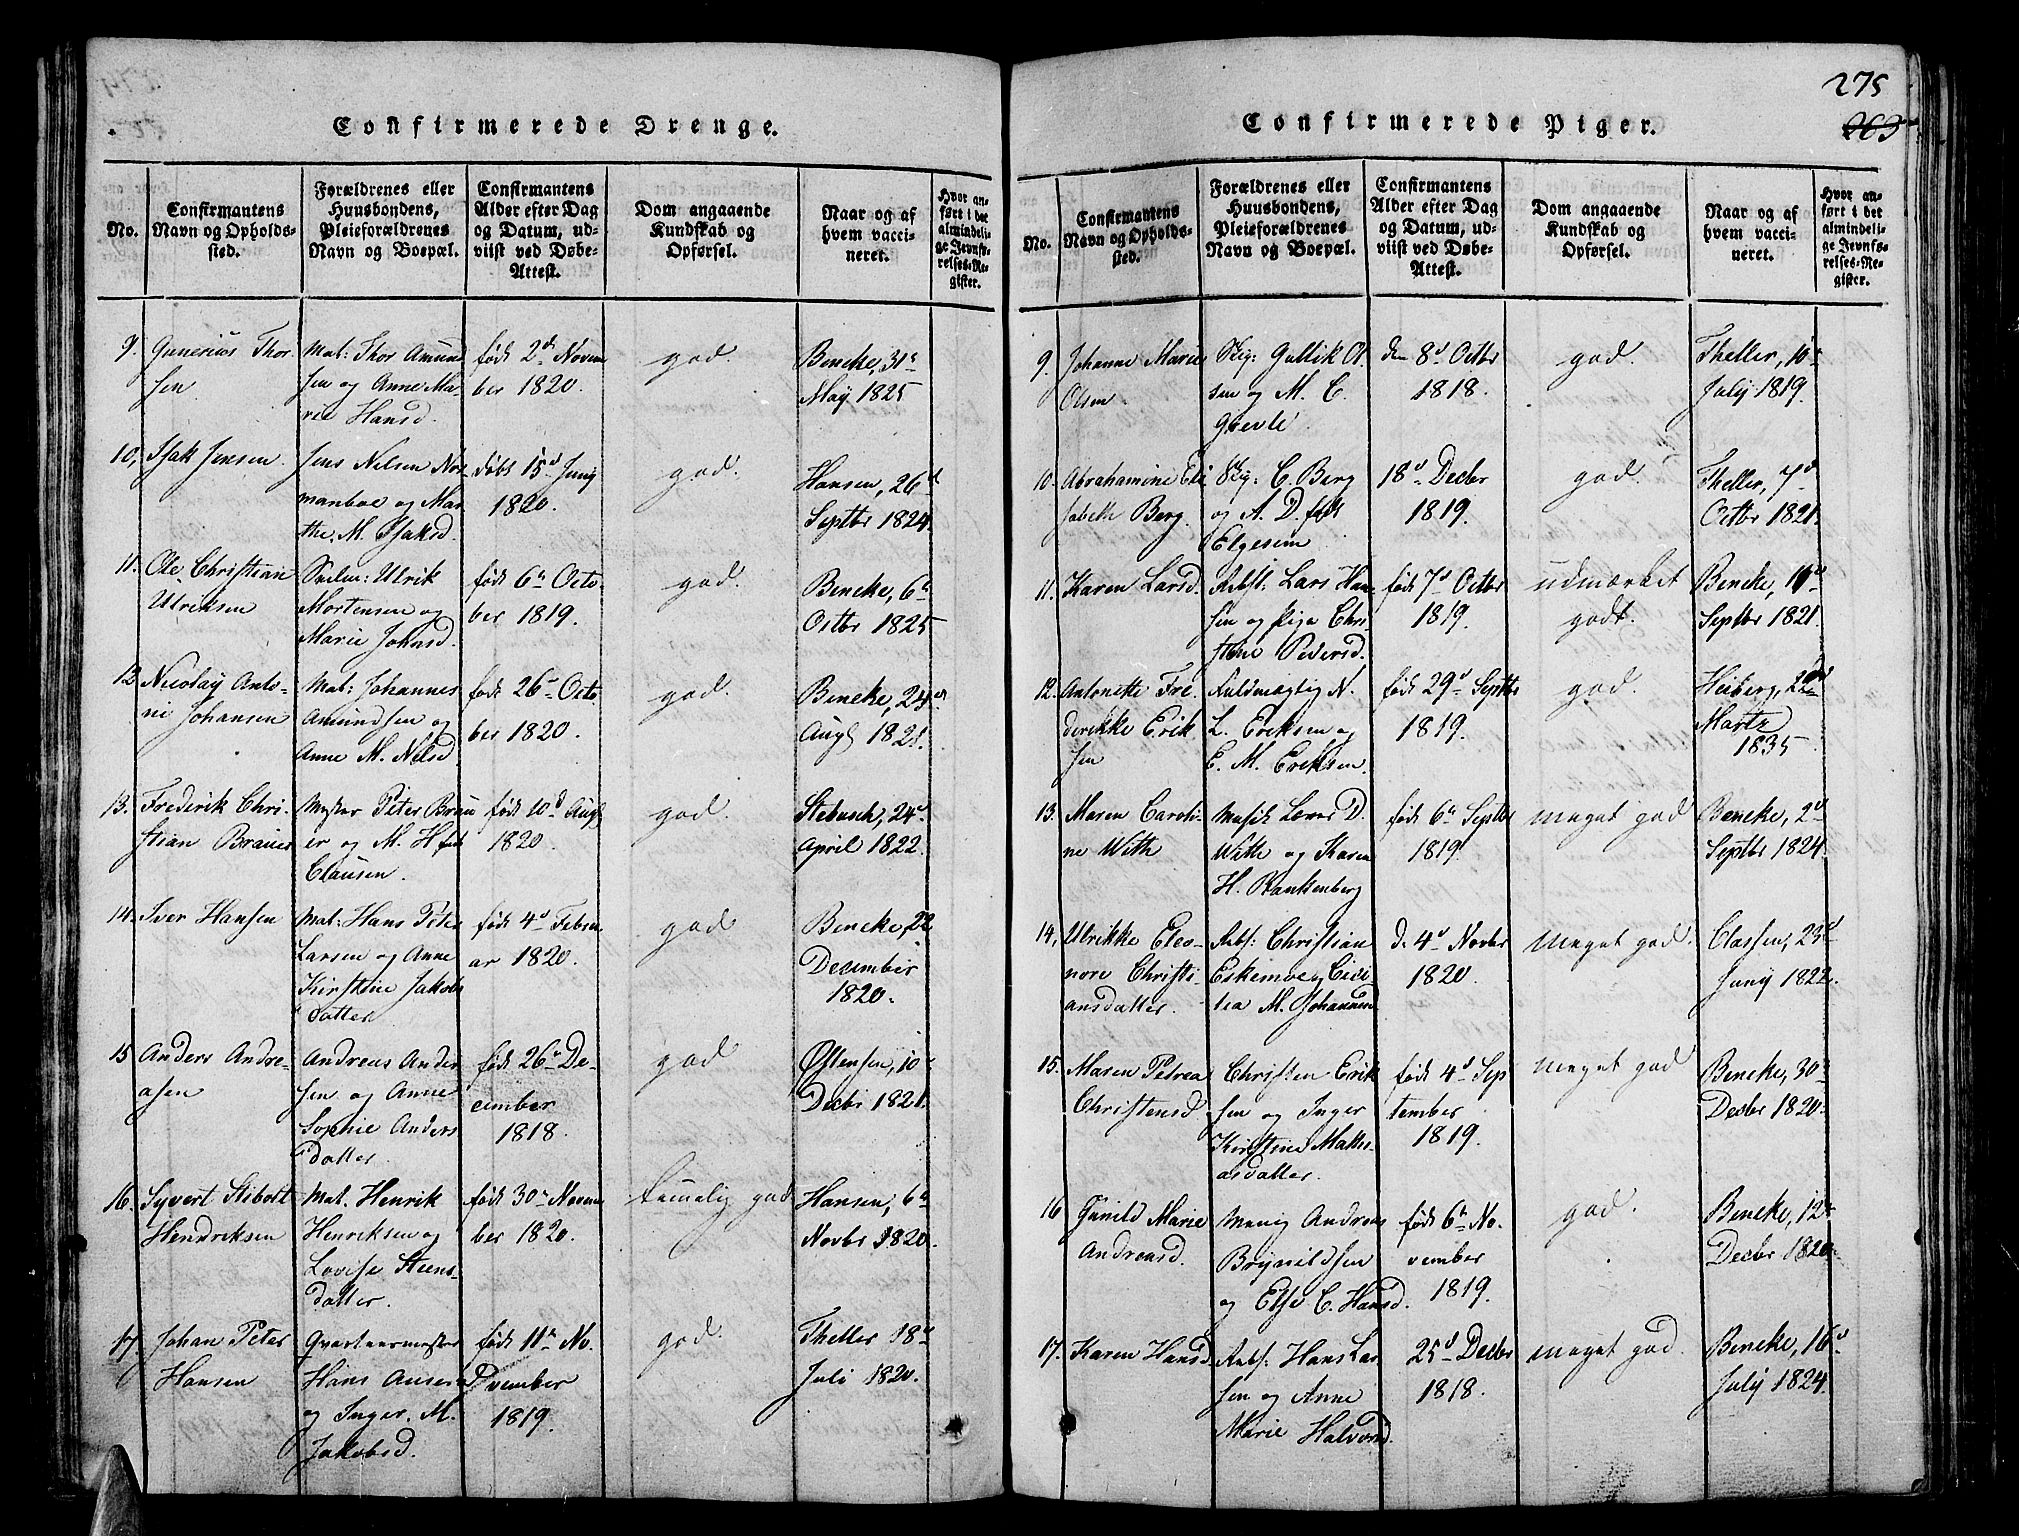 Confirmerede Drenge.
No.
Confirmantens
Navn og Opholds-
sted.
Forældrenes eller
Huusbondens,
Pleieforældrenes
Navn og Boepæl.
Confirmantens
Alder efter Dag
og Datum, ud-
viist ved Døbe-
Attest.
Dom angaaende
Kundskab og
Opførsel.
Naar og af
hvem vacci-
neret.
Hvor an-
ført i det
almindeli-
ge Jevnfø-
relses-Re-
gister.
9. Gunerius Thor-
sen
Mat: Thor Amund
sen og Anne Ma-
rie Hansd.
født 2d Novem
ber 1820.
god.
Beneke, 31
May 1825
10. Isak Jensen
Jens Nilsen Nor
manboe og Mar
the. M. Isaksd.
døbt 15d Juny
1820.
god.
Hansen, 26d
Septbr 1824.
11. Ole Christian
Ulriksen
Ulrik
Mortensen og
Marie Johnsd.
født 6 Octo
ber 1819.
god.
Beneke, 6
Octbr 1825
12 Nicolay Anto-
ni Johansen
Mat: Johannes
Amundsen og
Anne M. Nilsd
født 26 Octo
ber 1820.
god.
Beneke, 24
Augt 1821.
13. Frederik Chri-
stian Brauer
Mester Peter Brau
er og M. H. født
Clausen.
født 10d Augt
1820.
god.
Stebusch, 24
April 1822.
14. Iver Hansen
Mat: Hans Peter
Larsen og Anne
Kirstine Jakobs
datter
født 4d Febru
ar 1820.
god
Beneke, 22
December
1820.
15 Anders Andre-
asen
Andreas Ander
sen og Anne
Sophie Anders
datter.
født 26 De-
cember
1818.
god
Østensen, 10
Decbr 1821.
16. Syvert Stibolt
Hendriksen
Mat. Henrik
Henriksen og
Lovise Steens-
datter.
født 30 Novem
ber 1820.
temelig god
Hansen, 6
Novbr 1820.
17. Johan Peter
Hansen
Qvarteermester
Hans Ansen
og Inger. M.
Jakobsd.
født 11 No-
vember
1819.
god.
Theller 18
Juli 1820.
275
Confirmerede Piger.
No.
Confirmantens
Navn og Opholds-
sted.
Forældrenes eller
Huusbondens,
Pleieforældrenes
Navn og Boepæl.
Confirmantens
Alder efter Dag
og Datum, ud-
viist ved Døbe-
Attest.
Dom angaaende
Kundskab og
Opførsel.
Naar og af
hvem vacci-
neret.
Hvor an-
ført i det
almindeli-
ge Jevnfø-
relses-Re-
gister.
9. Johanne Marie
Olsen
Gullik Ol
sen og M. C.
Grevle
den 8d Octbr
1818.
god.
Theller, 10
July 1819.
10. Abrahamine Eli
sabeth Berg.
C. Berg
og A. D. født
Elgesem
18d Decbr
1819.
god.
Theller, 7d
Octbr 1821.
11. Karen Larsd.
Arbst: Lars Han-
sen og Pige Chri
stine Pedersd.
født 7d Octbr
1819.
udmærket
godt.
Beneke, 10d
Septbr 1821.
12. Antonette Fre
derikke Erik
sen
Fuldmægtig N.
L. Eriksen og
E. M. Eriksen.
født 29d Septbr
1819.
god.
Heiberg, 22d
Martz
1835
13. Maren Caroli-
ne With
Musik Lærer D.
With og Karen
H. Rankenberg
født 6 Septbr
1819.
meget god
Beneke, 2d
Septbr 1824.
14. Ulrikke Eleo-
nore Christi-
ansdatter.
Arbs: Christian
Eskemoe og Ceci-
lia M. Johannsd
d. 4d Novbr
1820.
Meget god.
Classen, 23d
Juny 1822.
15. Maren Petrea
Christensd
Christen Erik
sen og Inger
Kirstine Mathi-
asdatter.
født 4d Sep
tember
1819.
meget god
Beneke, 30
Decbr 1820.
16 Gunild Marie
Andreasd.
Andreas
Brynildsen
og Else C. Hansd.
født 6 No-
vember
1819.
god.
Beneke, 12
Decbr 1820.
17. Karen Hansd
Arbs: Hans Lar
sen og Anne
Marie Halvorsd
25d Decbr
1818.
meget god.
Beneke, 16d
July 1824.